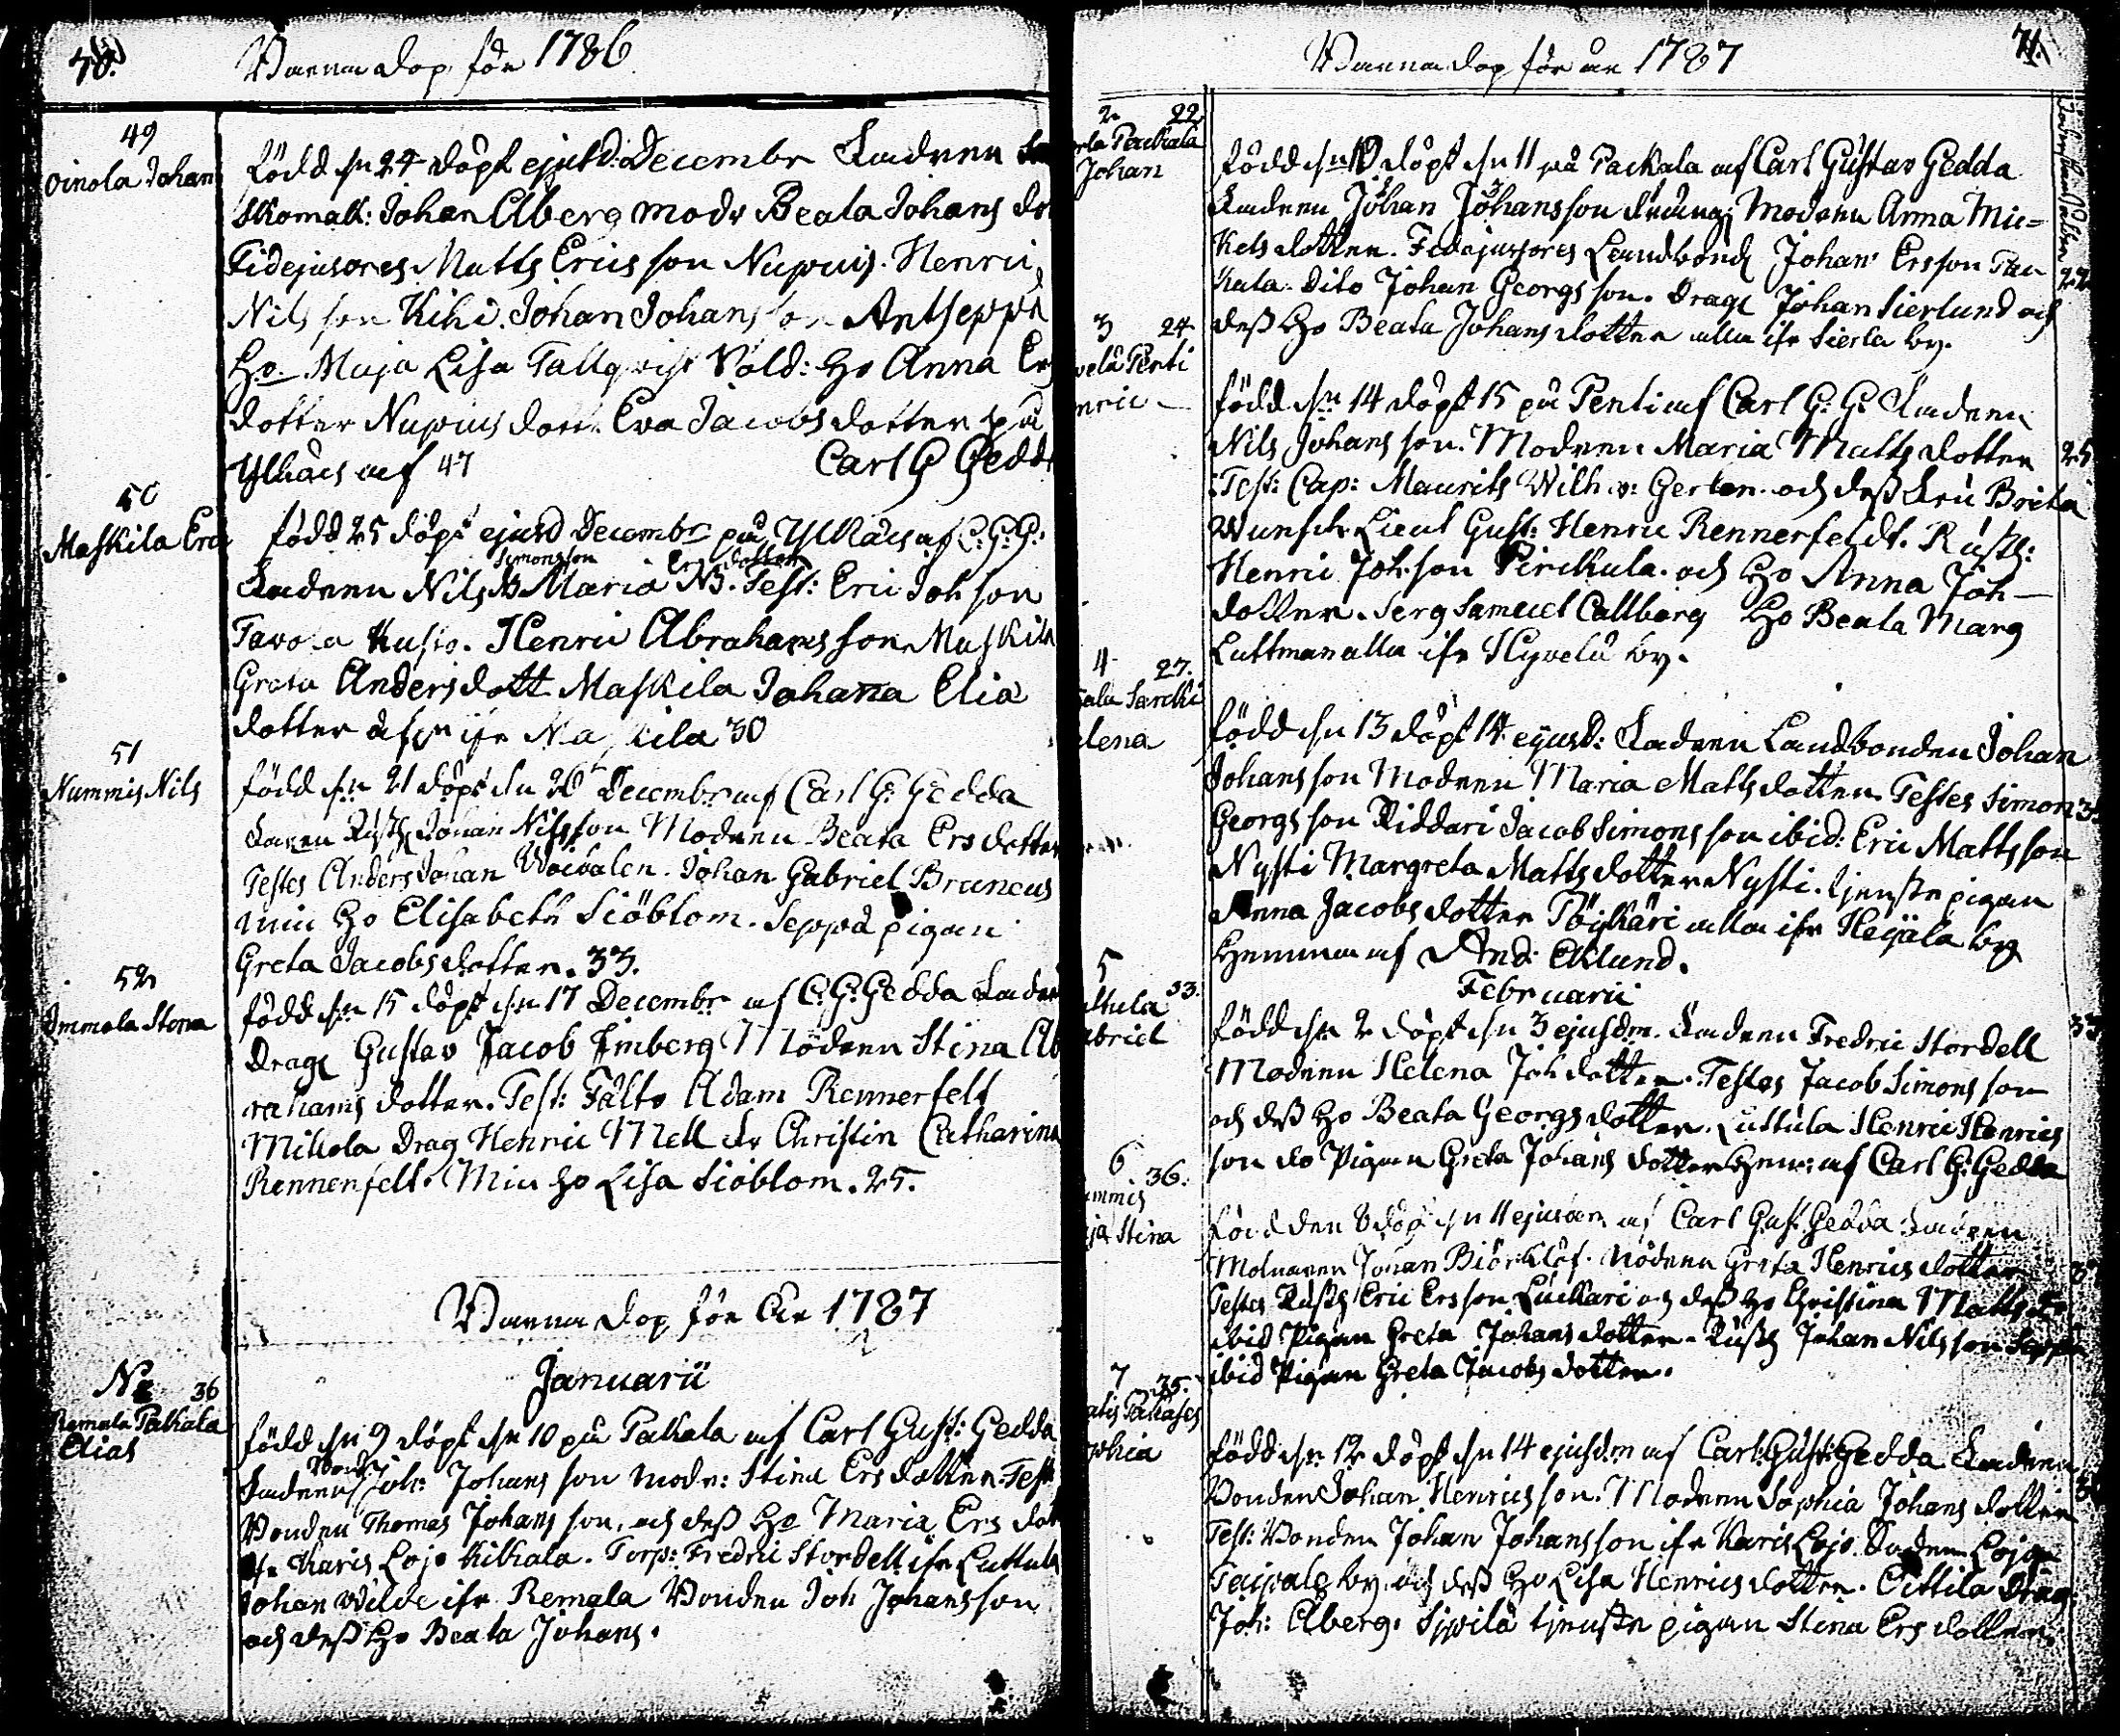 70.
Barna dop för 1786
49
oinola Johan
född dn 24 döpt ejusd: Decembr fadren
skomak: Johan Åberg modr Beata Johans do
Fidejusores Matts Ericsson Nupuis. Henric
Nilsson Kihi. Johan Johansson Antseppä
Ho Maja Lisa Tallqvist Sold: Ho Anna Ers
dotter Nupuis dott. Eva Jacobs dotter på
Ylkäis af 47 Carl G Gedda
50
Maskila Eric
född 25 döpt ejusd Decembr på Ylkäis af C: G: G:
Simonsson Ersdotter
fadren Nils NB Maria NB. Test: Eric Johson
Tavola Kusto. Henric Abrahamsson Maskila
Greta Andersdott Maskila Johanna Elia
dotter ifr Maskila 30
51
Nummis Nils
född dn 21 döpt dn 26 Decembr af Carl G: Gedda
fadren Rusth Johan Nilsson Modren Beata Ersdotter
Testes Anders Johan Woivalen. Johan Gabriel Bruneus
min Ho Elisabeth Siöblom. Seppä pigan
Greta Jacobsdotter. 33.
52
Immola Stina
född dn 15 döpt dn 17 Decembr af C: G: Gedda fadren
Drag Gustav Jacob Imberg Modren Stina Ab
rahams dotter. Test: Fältv Adam Rennerfelt
Mikola Drag Henric Mell Christin Catharina
Rennenfelt. Min ho Lisa Siöblom. 25.
Barna dop för År 1787
Januarii
No 36
Remala Pakala
Elias
född dn 9 döpt dn 10 på Pakala af Carl Gust: Gedda
Bond
fadren Joh: Johansson modr: Stina Ersdotter. Test
Bonden Thomas Johansson, och dess Ho Maria Ers dot
ifr Karis Lojo Kitkala. Torp: Fredric Stordell ifr Luttula
Johan Wilde ifr Remala Bonden Joh Johansson
och dess Ho Beata Johans.
Barna dop för år 1787
71.
2 22
erla Packala
Johan
född dn 10 döpt dn 11 på Packala af Carl Gustav Gedda
fadren Johan Johansson dräng; Modren Anna Mic=
kels dotter. Fidejussores Landbond Johan Ersson Pac
kala. dito Johan Georgsson. Drag Johan Sierlund och
dess Ho Beata Johansdotter alla ifr Sierla by.
22
3 24
velä Penti
nric
född dn 14 döpt 15 på Penti af Carl G: G: fadren
Nils Johansson. Modren Maria Matts dotter 25
Test: Cap: Maurits Wilh v: Gerten och dess fru Brita
Wunsch Lieut Gust: Henric Rennerfeldt. Rusth:
Henric Johsson Pirckula. och Ho Anna Joh
dotter. Serg Samuel Callberg Ho Beata Marg
Luttman alla ifr Hyvelä by.
4 27.
jala Sarcki
elena
född dn 13 döpt 14 ejusd: fadren Landbonden Johan
Johansson Modren Maria Mattsdotter. Testes Simon
Georgsson Riddari Jacob Simonsson ibid: Eric Mattsson
Nysti Margreta Mattsdotter Nysti. tjenste pigan
Anna Jacobsdotter Pöykäri alla ifr Heijala by
Hemma af And: Eklund.
Februarii
5 33.
uttula
abriel
född dn 2 döpt dn 3 ejusdm. fadren Fredric Stordell 33
Modren Helena Johdotter. Testes Jacob Simonsson
och dess Ho Beata Georgsdotter. Luttula Henric Henrics
son do Pigan Greta Johans dotter hem: af Carl G: Gedda
6 36.
ummis
ja Stina
född den 8 döpt dn 11 ejusdm af Carl Gust: Gedda fadren
Molnaren Johan Biörklöf. Modren Greta Henricsdotter
Testes Rusth Eric Ersson Luckari och dess Ho Christina Matts
ibid Pigan Greta Johansdotter. Rusth Johan Nilsson Seppä
ibid Pigan Greta Jacobsdotter.
7 35.
phia
född dn 12 döpt dn 14 ejusdm af Carl: Gust: Gedda fadren
Bonden Johan Henricsson. Modren Sophia Johans dotter
Test: Bonden Johan Johansson ifr Karis Lojo Socken Lojo
Taipale by. och dess Ho Lisa Henricsdotter. Outtila Drag
Joh: Åberg. Sipilä tjenste pigan Stina Ersdotter.